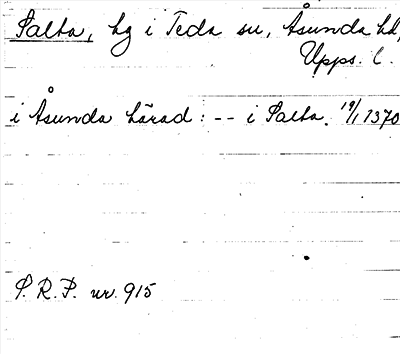 Salta, hg i Teda sn, Åsunda hd,
Upps. l.
i Åsunda härad: -- i Salta. 19/1 1370
S. R. P. nr. 915